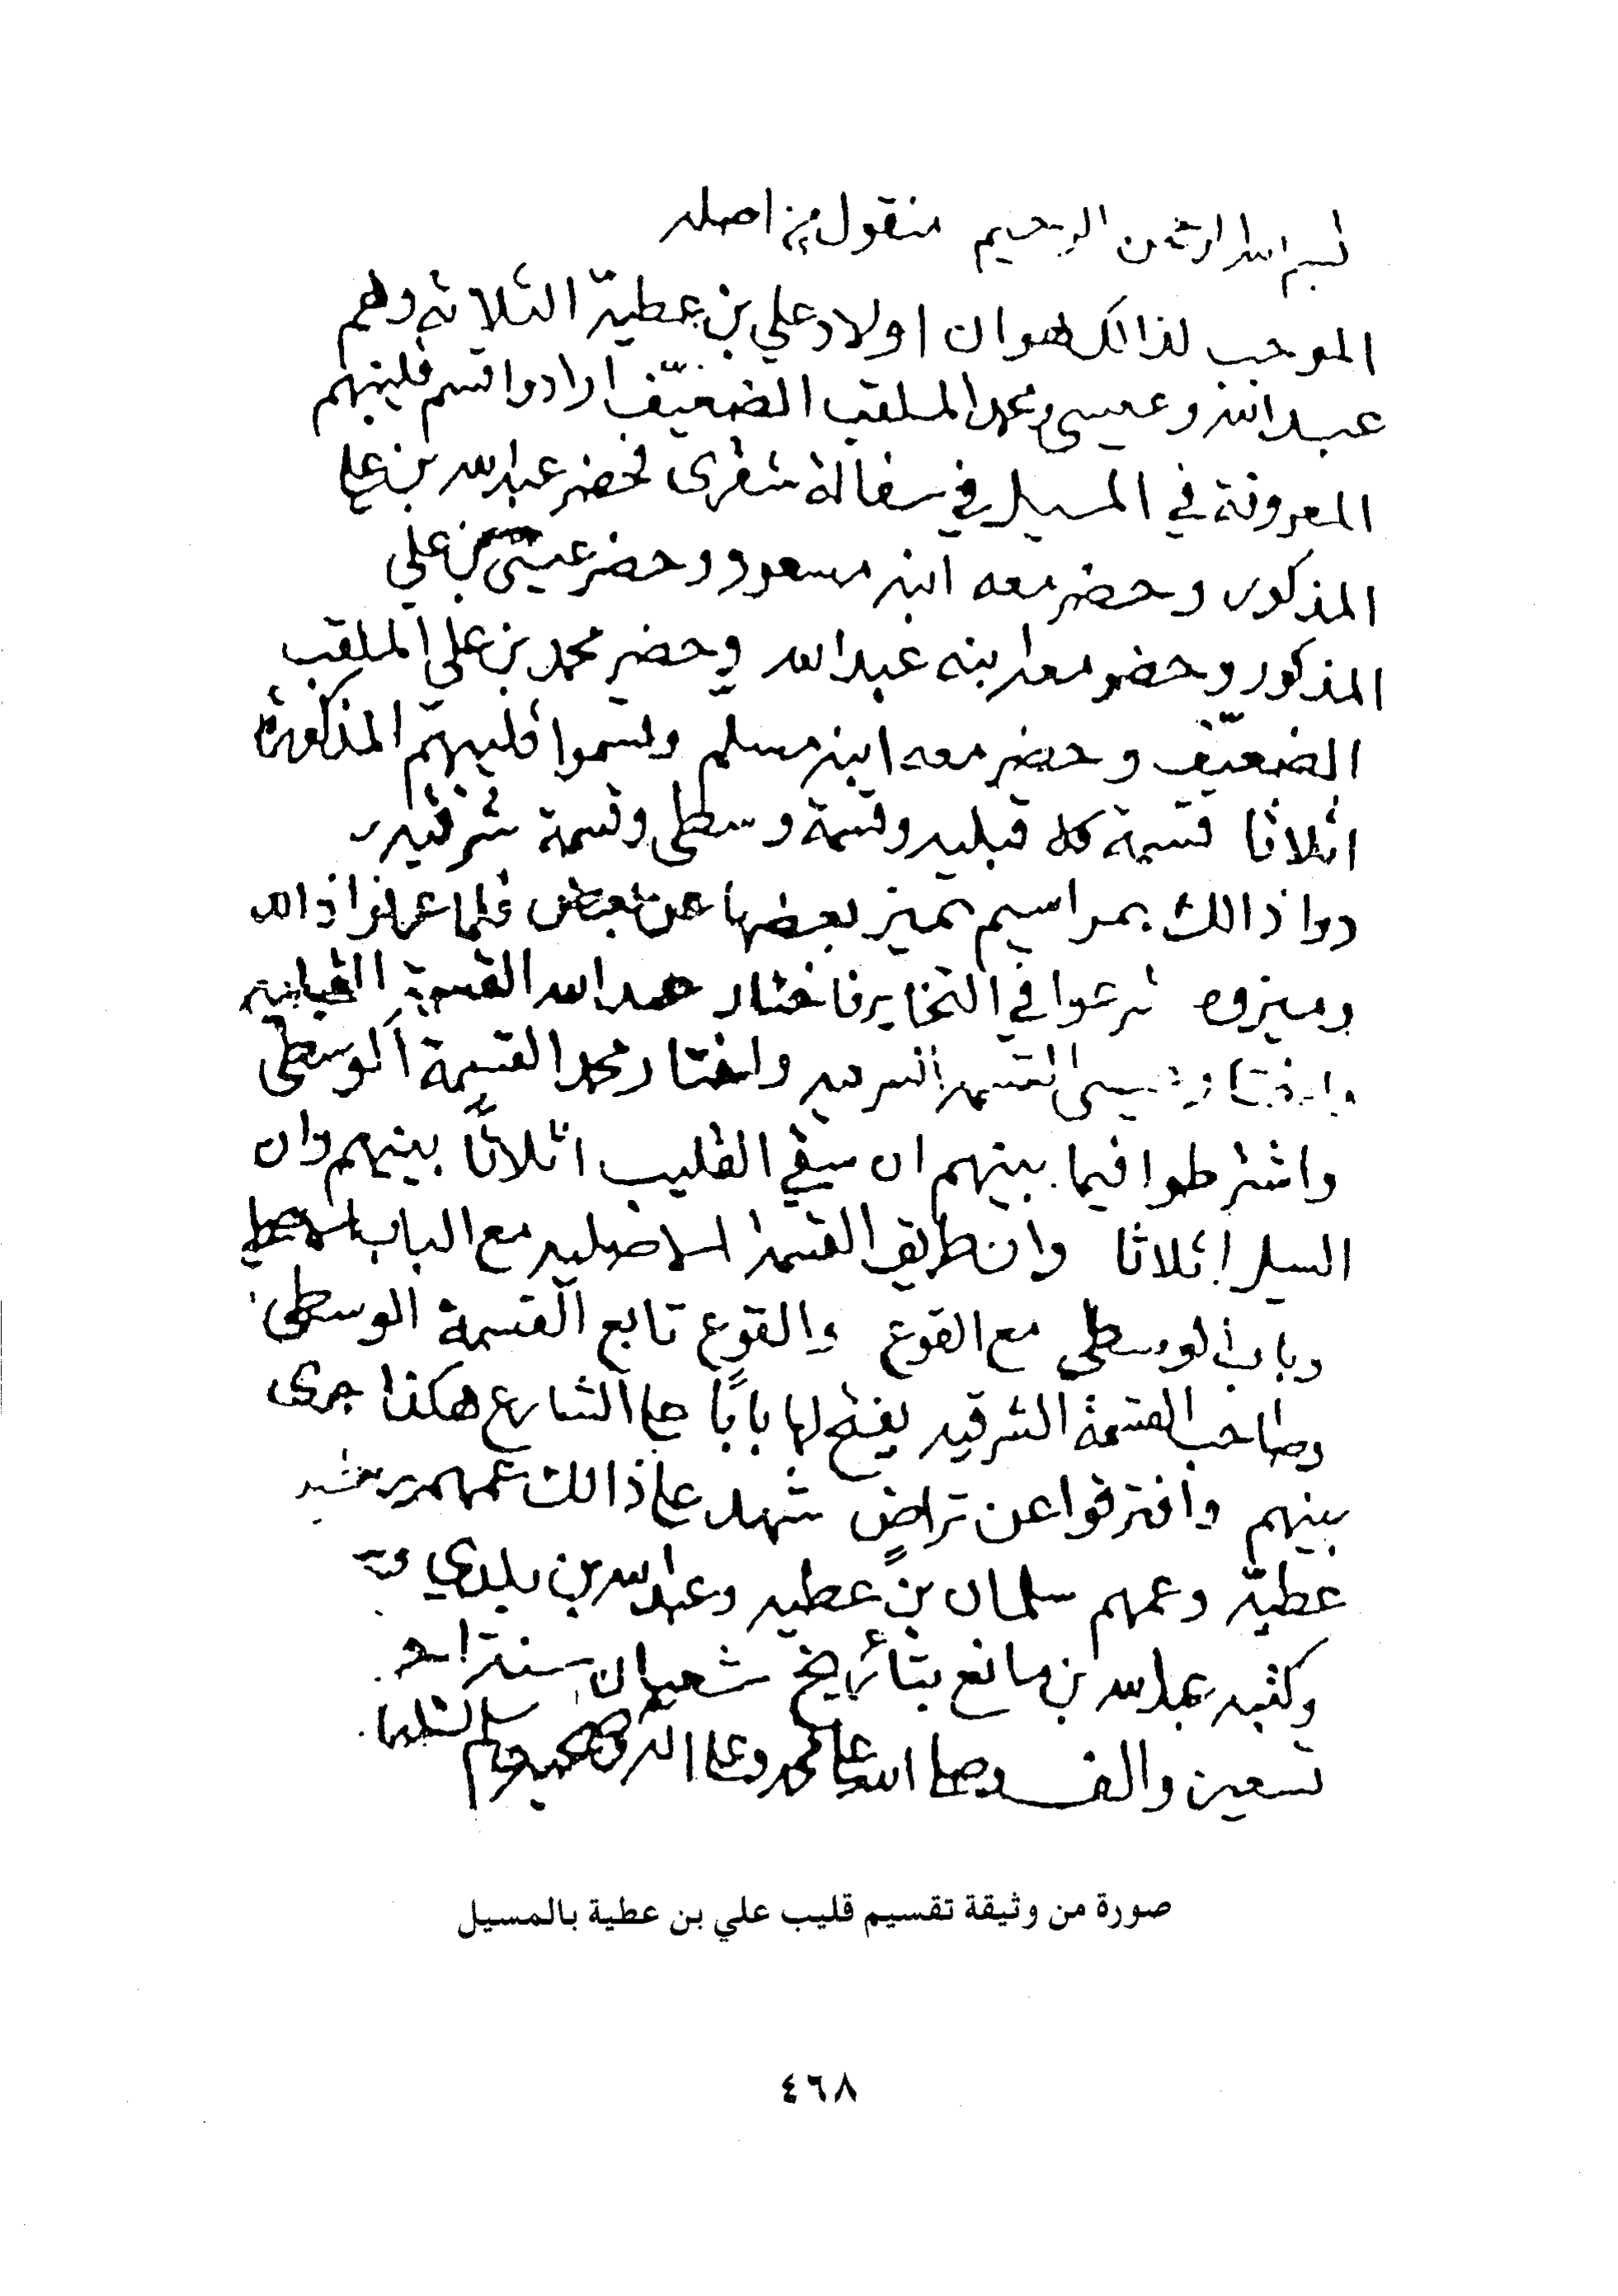 بسم الله الرحمن الرحيم منقول من اصله
الموجب لذالك هو ان اولاد علي بن عطية الثلاثه وهم
عبدالله وعيسى ومحمد الملقب الضعيّف ارادوا قسم قليبهم
المعروفة في المسيل في سفالة شقرى فحضر عبدالله بن علي
المذكور وحضر معه ابنه مسعود وحضر عيسى بن علي
المذكور وحضر معه ابنه عبدالله وحضر محمد بن علي الملقب
الضعيّف وحضر معه ابنه مسلم وقسموا قليبهم المذكورة
اثلاثا قسمة قبليه وقسمة وسطى وقسمة شرقيه
ذالك بمراسيم تميز بعضها عن بعض فلما عرفوا ذالك
وميزوه شرعوا في التخاير فاختار عبدالله القسمة القبلية
واختار عيسى القسمه الشرقيه واختار محمد القسمة الوسطى
واشترطوا فيما بينهم ان سقي القليب اثلاثًا بينهم وان
السيل اثلاثا وان طريق القسمه الاصليه مع الباب الاصلي
وباب الوسطى مع القوع والقوع تابع القسمة الوسطى
وصاحب القسمة الشرقيه يفتح لها بابًا على الشارع هكذا جرى
بينهم وافترقوا عن تراضٍ شهد على ذالك عمهم بن
عطيّه وعمهم سلمان بن عطيه وعبدالله بن بلدي
وكتبه عبدالله بن مانع بتأريخ شعبان سنة احد
تسعين والف وصلى الله على محمد وعلى اله وصحبه وسلم تسليما
صورة من وثيقة تقسيم قليب علي بن عطية بالمسيل
٤٦٨